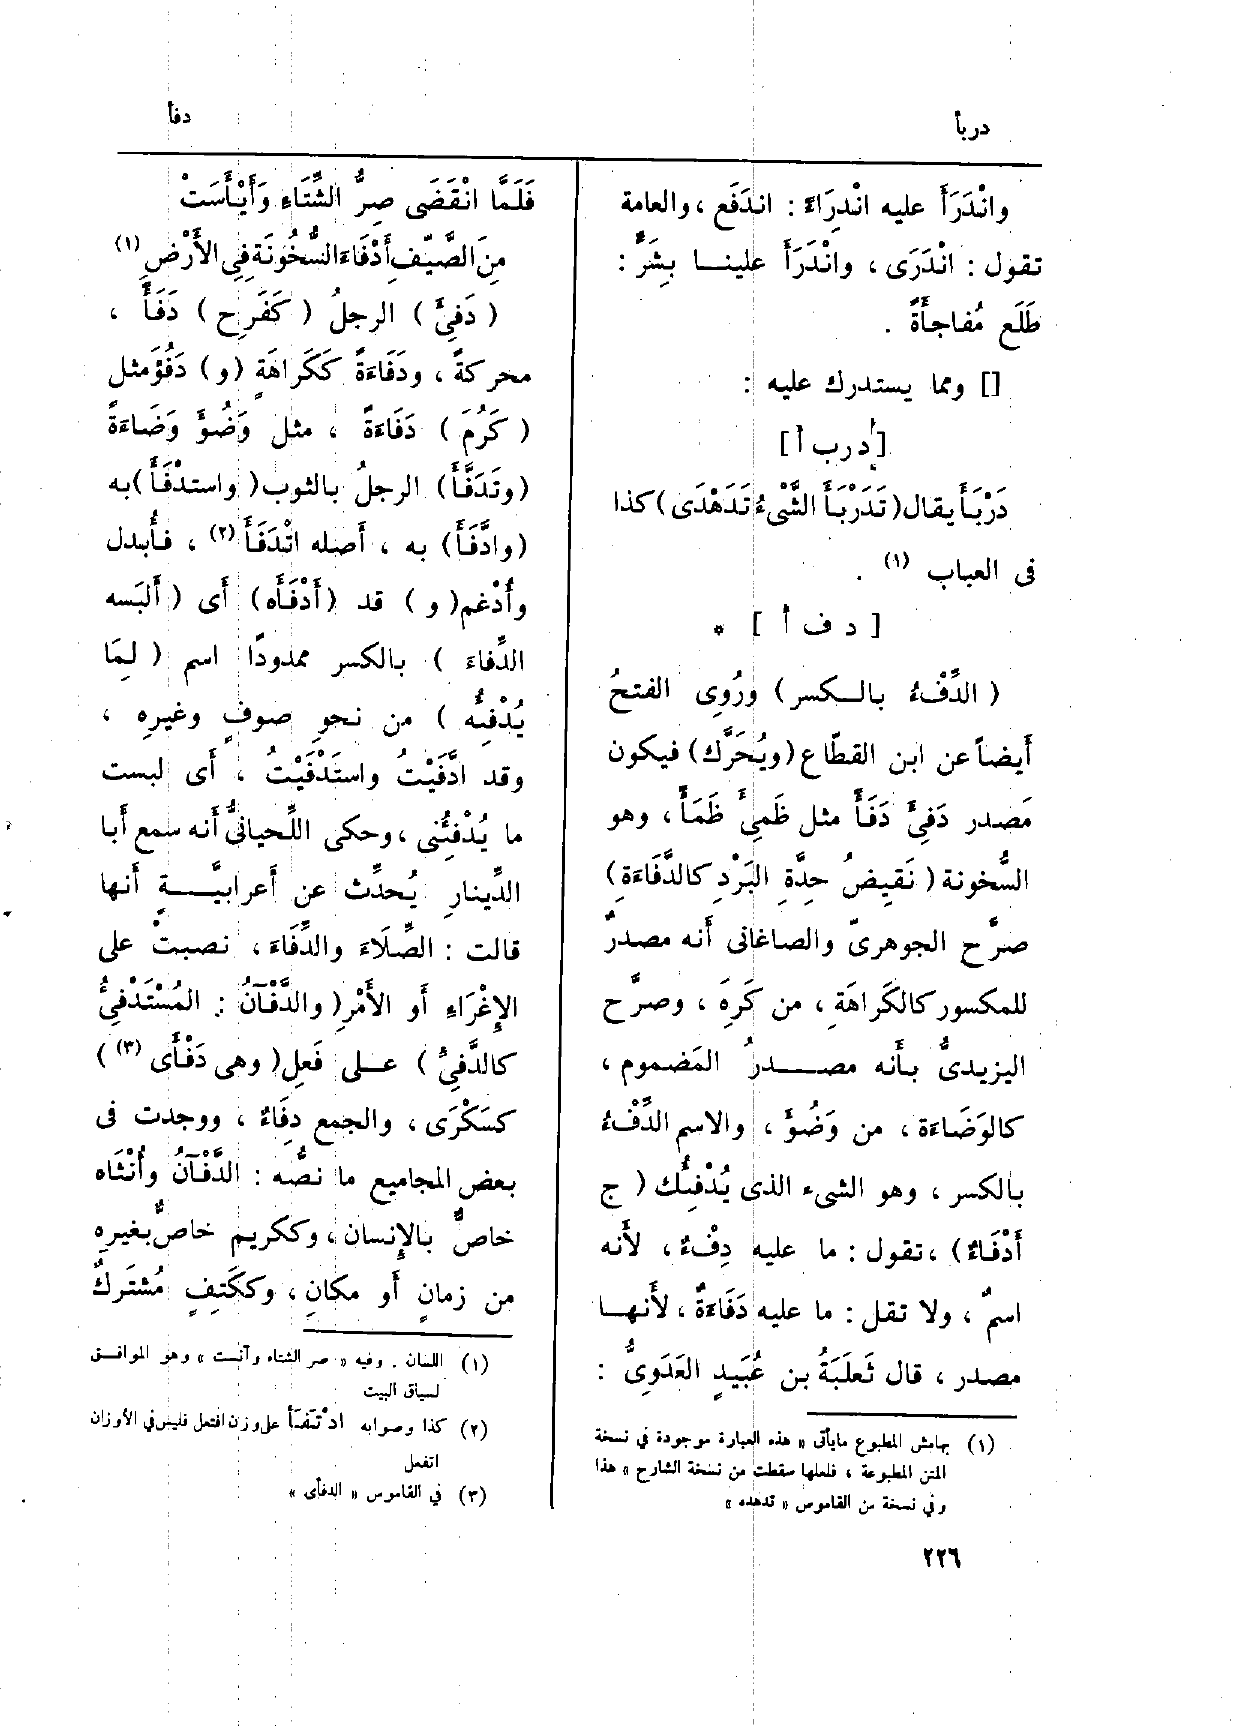 دربأ
دفأ
وانْدَرَأَ عليه انْدِرَاءً : اندَفَع ، والعامة
تقول : انْدَرَى ، وانْدَرَأَ علينــا بِشَرٍّ :
طَلَع مُفاجأَةً .
[] ومما يستدرك عليه :
[درب أ]
دَرْبَأَ يقال (تَدَرْبَأَ الشَّىْءُ تَدَهْدَى) كذا
فى العباب (١) .
[ د ف أ ] *
( الدِّفْءُ بالــكسر ) ورُوِى الفتحُ
أَيضاً عن ابن القطّاع (ويُحَرَّك) فيكون
مَصدر دَفِئَ دَفَأً مثل ظَمِئَ ظَمَأً ، وهو
السُّخونة ( نَقِيضُ حِدَّةِ البَرْدِ كالدَّفَاءَةِ )
صرَّح الجوهرىّ والصاغانى أَنه مصدرٌ
للمكسور كالكَرَاهَةِ ، من كَرِهَ ، وصرَّح
اليزيدىُّ بأَنه مصــــدرُ المَضموم ،
كالوَضَاءَة ، من وَضُؤَ ، والاسم الدِّفْءُ
بالكسر ، وهو الشىء الذى يُدْفِئُك ( ج
أَدْفَاءٌ ) ، تقول : ما عليه دِفْءٌ ، لأَنه
اسمٌ ، ولا تقل : ما عليه دَفَاءَةٌ ، لأَنهــا
مصدر ، قال ثَعلَبَةُ بن عُبَيدٍ العَدَوِىُّ :
(١) بهامش المطبوع مايأتى « هذه العبارة موجودة في نسخة
المتن المطبوعة ، فلعلها سقطت من نسخة الشارح » هذا
وفي نسخة من القاموس « تدهده »
فَلَمَّا انْقَضَى صِرُّ الشِّتَاءِ وَأَيْأَسَتْ
مِنَ الصَّيْفِ أَدْفَاءُ السُّخُونَةِ فِى الأَرْضِ (١)
( دَفِئَ ) الرجلُ ( كَفَرِح ) دَفَأً ،
محركةً ، ودَفَاءَةً كَكَرَاهَةٍ (و) دَفُؤَ مثل
( كَرُمَ ) دَفَاءَةً ، مثل وَضُؤَ وَضَاءَةً
(وتَدَفَّأَ) الرجلُ بالثوب ( واستدْفَأَ ) به
(وادَّفَأَ) به ، أَصله اتْدَفَأَ (٢) ، فأُبدل
وأُدْغم ( و ) قد (أَدْفَأَه) أَى ( أَلبَسه
الدِّفاءَ ) بالكسر ممدودًا اسم ( لِمَا
يُدْفِئُه ) من نحوِ صوفٍ وغيرِه ،
وقد ادَّفَيْتُ واستَدْفَيْتُ ، أَى لبست
ما يُدْفِئُنى ، وحكى اللِّحيانىُّ أَنه سمع أَبا
الدِّينارِ يُحدِّث عن أَعرابيَّـــةٍ أَنها
قالت : الصِّلَاءَ والدِّفَاءَ ، نصبتْ على
الإِغْرَاءِ أَو الأَمْرِ ( والدَّفْآنُ : المُسْتَدْفِئُ
كالدَّفِئُ ) عــلى فَعِلٍ ( وهى دَفْأَى (٣) )
كسَكْرَى ، والجمع دِفَاءٌ ، ووجدت فى
بعض المجاميع ما نصُّه : الدَّفْآنُ وأُنْثَاه
خاصٌّ بالإِنسان ، وككريمٍ خاصٌّ بغيرِه
من زمانٍ أَو مكانٍ ، وككَتِفٍ مُشْتَركٌ
(١) اللسان . وفيه « صر الشتاء وآنست » وهو الموافــق
لسياق البيت
(٢) كذا وصوابه ادْتَفَأَ على وزن افتعل فليس في الأوزان
اتفعل
(٣) في القاموس « الدفأى »
٢٢٦